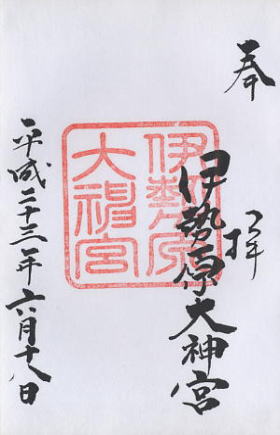 奉拝
伊勢原大神宮
伊勢原
大神宮
平成二十三年六月十八日